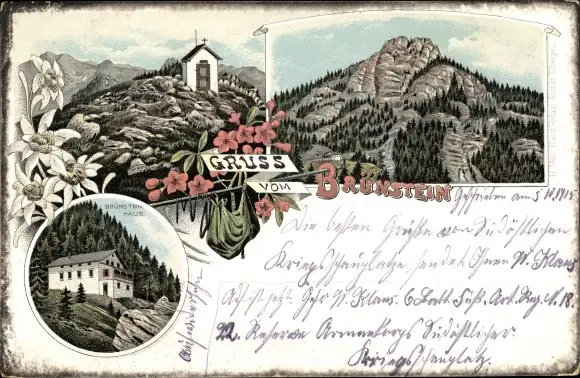 GRUSS
VOM
BRÜNSTEIN
BRÜNSTEIN
HAUS.
Geschrieben am 5 10.1915
Die besten Grüße vom Südöstlichen
Kriegsschauplatz sendet Ihnen W. Klaus
jetzt Gefr. W. Klaus. 6 Batt. Fuß. Art. Reg. N. 18.
22. Reserve Armeekorps Südöstlicher
Kriegsschauplatz.